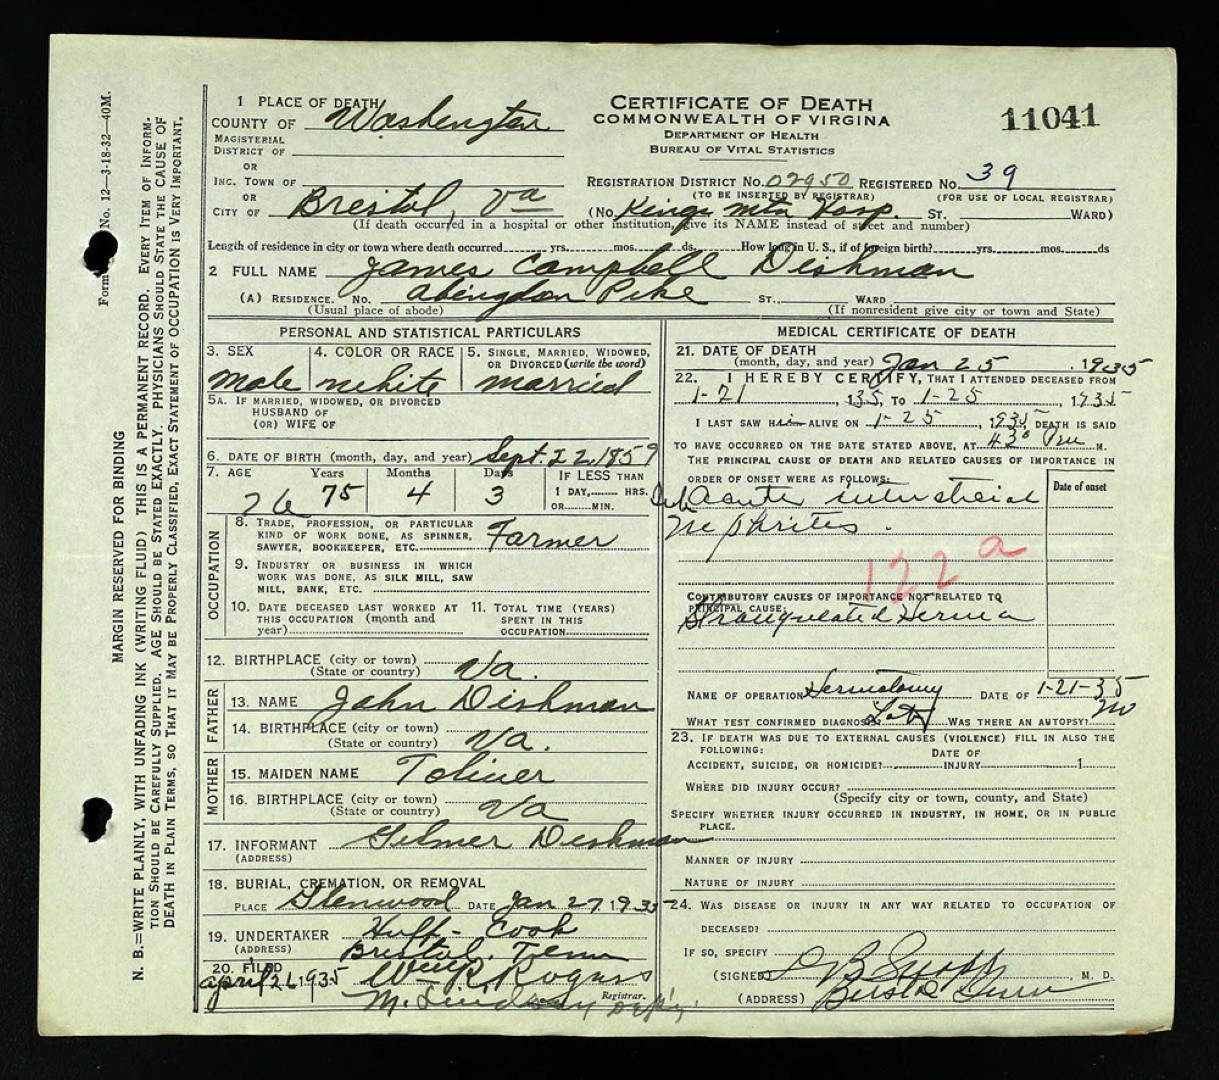 Form No. 12—3-18-32—40M.
MARGIN RESERVED FOR BINDING
N. B.—WRITE PLAINLY, WITH UNFADING INK (WRITING FLUID). THIS IS A PERMANENT RECORD. EVERY ITEM OF INFORM-
TION SHOULD BE CAREFULLY SUPPLIED. AGE SHOULD BE STATED EXACTLY. PHYSICIANS SHOULD STATE THE CAUSE OF
DEATH IN PLAIN TERMS, SO THAT IT MAY BE PROPERLY CLASSIFIED. EXACT STATEMENT OF OCCUPATION IS VERY IMPORTANT.
1 PLACE OF DEATH
COUNTY OF Washington
MAGISTERIAL
DISTRICT OF
OR
INC. TOWN OF
OR
CITY OF Bristol, Va
CERTIFICATE OF DEATH
COMMONWEALTH OF VIRGINIA
DEPARTMENT OF HEALTH
BUREAU OF VITAL STATISTICS
11041
REGISTRATION DISTRICT NO. 02950 REGISTERED NO. 39
(TO BE INSERTED BY REGISTRAR) (FOR USE OF LOCAL REGISTRAR)
(No. Kings Mtn Hosp. ST. WARD)
(If death occurred in a hospital or other institution, give its NAME instead of street and number)
Length of residence in city or town where death occurred yrs. mos. ds. How long in U. S., if of foreign birth? yrs. mos. ds
2 FULL NAME James Campbell Dishman
(A) RESIDENCE. No. Abingdon Pike ST. WARD
(Usual place of abode) (If nonresident give city or town and State)
PERSONAL AND STATISTICAL PARTICULARS
3. SEX male
4. COLOR OR RACE white
5. SINGLE, MARRIED, WIDOWED,
OR DIVORCED (write the word)
married
5A. IF MARRIED, WIDOWED, OR DIVORCED
HUSBAND OF
(OR) WIFE OF
6. DATE OF BIRTH (month, day, and year) Sept. 22, 1859
7. AGE Years Months Days IF LESS THAN
1 DAY, HRS.
OR MIN.
76 75 4 3
OCCUPATION
8. TRADE, PROFESSION, OR PARTICULAR
KIND OF WORK DONE, AS SPINNER,
SAWYER, BOOKKEEPER, ETC. Farmer
9. INDUSTRY OR BUSINESS IN WHICH
WORK WAS DONE, AS SILK MILL, SAW
MILL, BANK, ETC.
10. DATE DECEASED LAST WORKED AT
THIS OCCUPATION (month and
year)
11. TOTAL TIME (YEARS)
SPENT IN THIS
OCCUPATION
12. BIRTHPLACE (city or town)
(State or country) Va.
FATHER
13. NAME John Dishman
14. BIRTHPLACE (city or town)
(State or country) Va.
MOTHER
15. MAIDEN NAME Toliver
16. BIRTHPLACE (city or town)
(State or country) Va
17. INFORMANT Gilmer Dishman
(ADDRESS)
18. BURIAL, CREMATION, OR REMOVAL
PLACE Glenwood DATE Jan 27, 1935
19. UNDERTAKER Huff-Cook
(ADDRESS) Bristol, Tenn
20. FILED
April 26, 1935 Rogers
M. Lindsay Depty. Registrar.
MEDICAL CERTIFICATE OF DEATH
21. DATE OF DEATH
(month, day, and year) Jan 25, 1935
22. I HEREBY CERTIFY, THAT I ATTENDED DECEASED FROM
1-21, 135, TO 1-25, 1935
I LAST SAW Him ALIVE ON 1-25, 1935, DEATH IS SAID
TO HAVE OCCURRED ON THE DATE STATED ABOVE, AT 4 30 Pm M.
THE PRINCIPAL CAUSE OF DEATH AND RELATED CAUSES OF IMPORTANCE IN
ORDER OF ONSET WERE AS FOLLOWS:
Date of onset
Sub Acute interstitial
Nephritis.
122 a
CONTRIBUTORY CAUSES OF IMPORTANCE NOT RELATED TO
PRINCIPAL CAUSE:
Strangulated Hernia
NAME OF OPERATION Herniotomy DATE OF 1-21-35
WHAT TEST CONFIRMED DIAGNOSIS? Laby WAS THERE AN AUTOPSY? no
23. IF DEATH WAS DUE TO EXTERNAL CAUSES (VIOLENCE) FILL IN ALSO THE
FOLLOWING:
DATE OF
ACCIDENT, SUICIDE, OR HOMICIDE? INJURY 1
WHERE DID INJURY OCCUR?
(Specify city or town, county, and State)
SPECIFY WHETHER INJURY OCCURRED IN INDUSTRY, IN HOME, OR IN PUBLIC
PLACE.
MANNER OF INJURY
NATURE OF INJURY
24. WAS DISEASE OR INJURY IN ANY WAY RELATED TO OCCUPATION OF
DECEASED?
IF SO, SPECIFY
(SIGNED) M. D.
(ADDRESS) Bristol Tenn